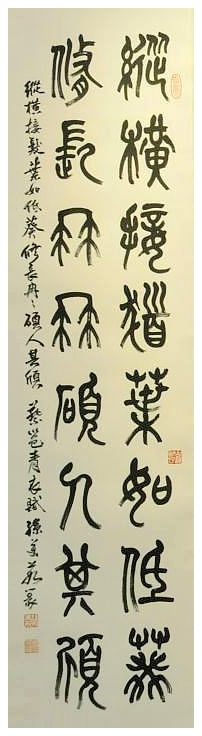 縱橫接髮葉如低葵
脩長冉冉碩人其頎
縱橫接髮葉如低葵修長冉〻碩人其頎 蔡邕青衣賦 孫